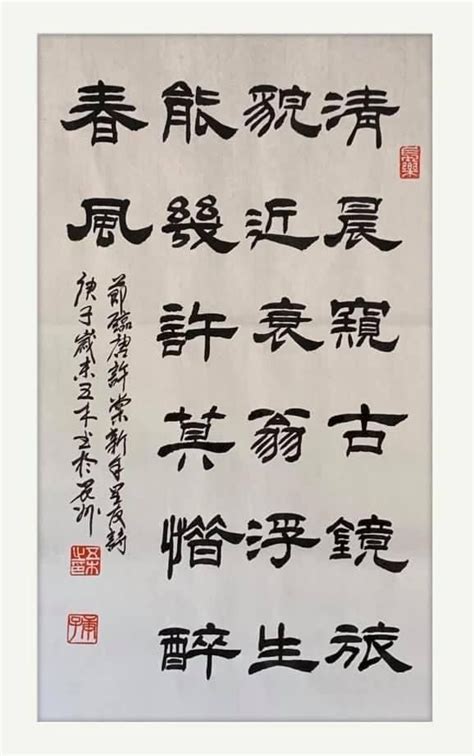 清晨窺古鏡旅
貌近衰翁浮生
能幾許莫惜醉
春風
節臨唐許棠新年呈友詩
庚子歲末五木书於
庚子